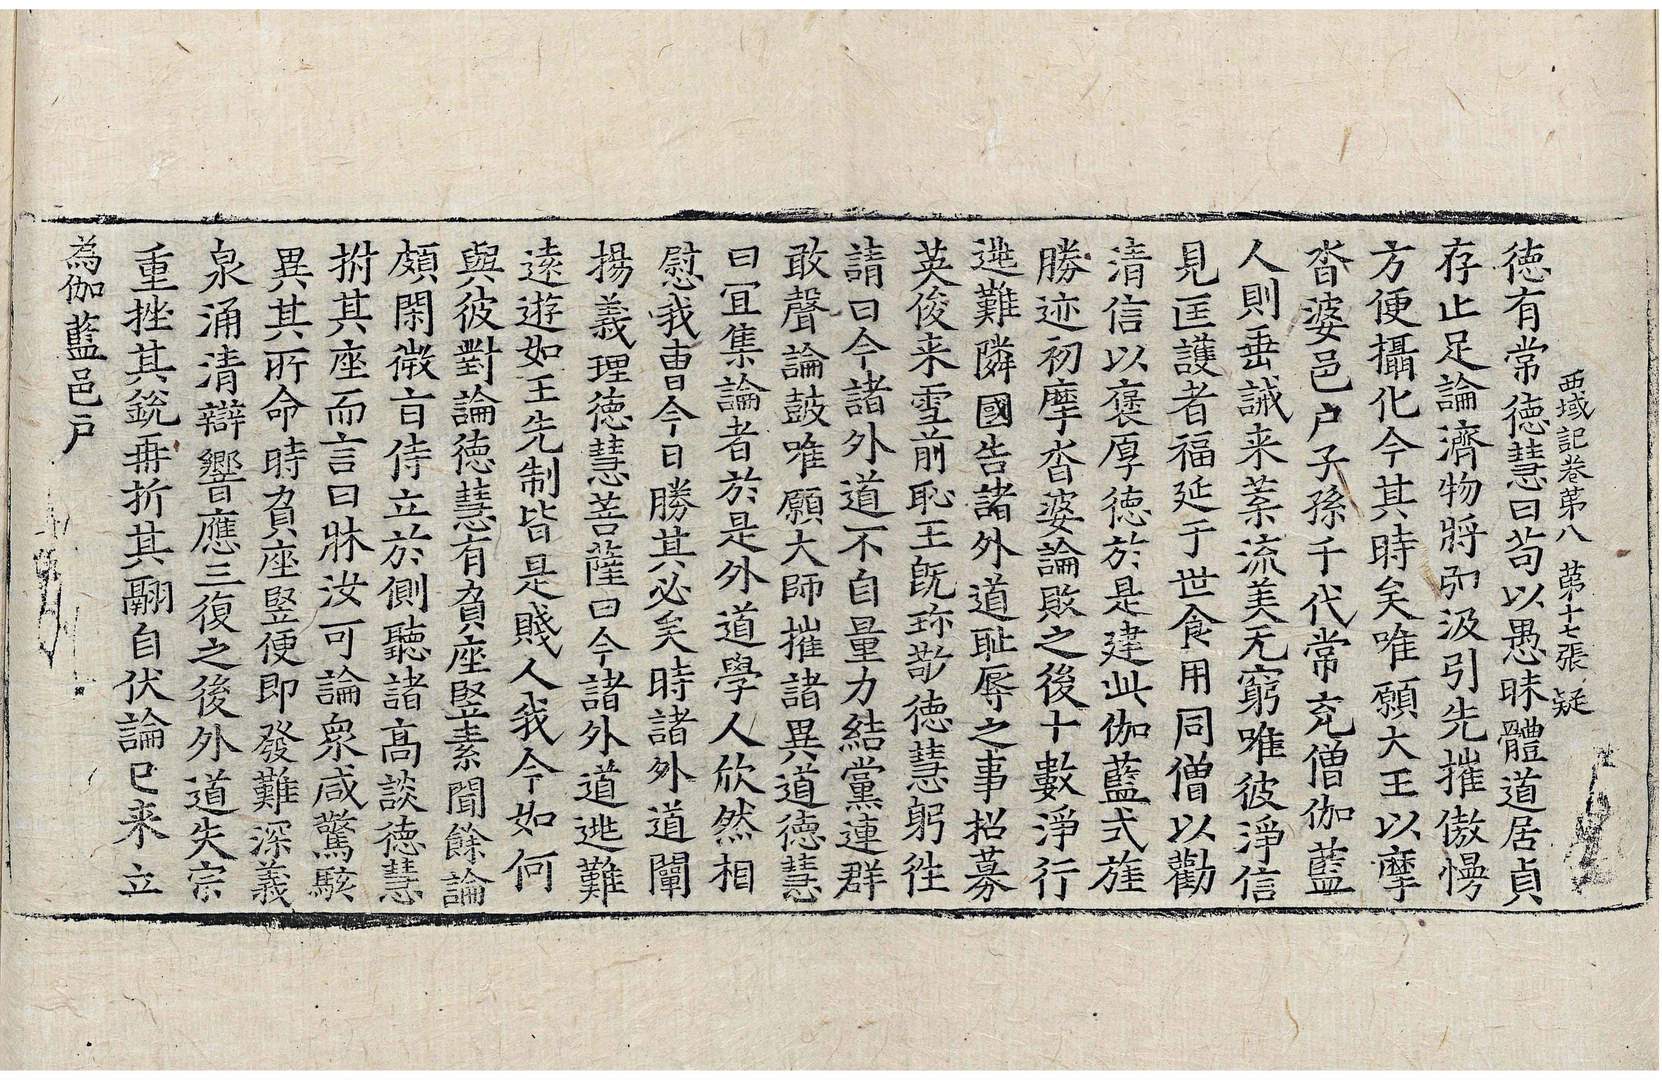 西域記卷第八　第十七張　疑
徳有常徳慧曰苟以愚昧體道居貞
存止足論濟物將弘汲引先摧傲慢
方便攝化今其時矣唯願大王以摩
沓婆邑户子孫千代常充僧伽藍
人則垂誡来葉流美无窮唯彼淨信
見匡護者福延于世食用同僧以勸
清信以褒厚徳於是建此伽藍式旌
勝迹初摩沓婆論敗之後十數淨行
逃難隣國告諸外道耻辱之事招募
英俊来雪前恥王既珎敬徳慧躬往
請曰今諸外道不自量力結黨連群
敢聲論鼓唯願大師摧諸異道徳慧
曰宜集論者於是外道學人欣然相
慰我曹今日勝其必矣時諸外道闡
揚義理徳慧菩薩曰今諸外道逃難
逺遊如王先制皆是賤人我今如何
與彼對論徳慧有負座竪素聞餘論
頗閑微㫖侍立於側聽諸髙談徳慧
拊其座而言曰牀汝可論衆咸驚駭
異其所命時負座竪便即發難深義
泉涌清辯響應三復之後外道失宗
重挫其銳再折其翮自伏論已来立
為伽藍邑戸